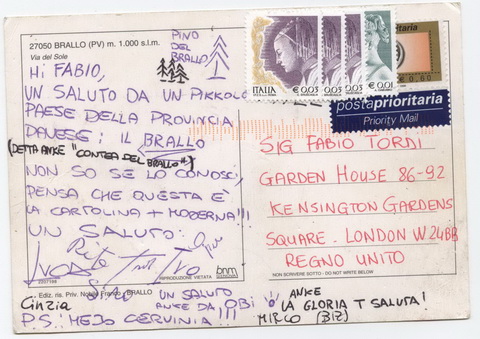 27050 BRALLO (PV) m. 1.000 s.l.m.
Via del Sole
PINO
DEL
BRALLO
HI FABIO,
UN SALUTO DA UN PICKOLO
PAESE DELLA PROVINCIA
PAVESE: IL BRALLO
(DETTA ANKE "CONTEA DEL BRALLO")
NON SO SE LO CONOSCI,
PENSA CHE QUESTA È
LA CARTOLINA + MODERNA!!!
UN SALUTO.
RIPRODUZIONE VIETATA
bnm
Ediz. ris. Priv. BRALLO
Cinzia
UN SALUTO
ANKE DA OBI
P.S.: MEJO CERVINIA!!!
ITALIA
€ 0,03
€ 0,03
€ 0,03
€ 0,01
€ 0,60
postaprioritaria
Priority Mail
SIG FABIO TORDI
GARDEN HOUSE 86-92
KENSINGTON GARDENS
SQUARE. LONDON W24BB
REGNO UNITO
NON SCRIVERE SOTTO - DO NOT WRITE BELOW
ANKE
LA GLORIA T SALUTA!
MIRCO (BIZ)